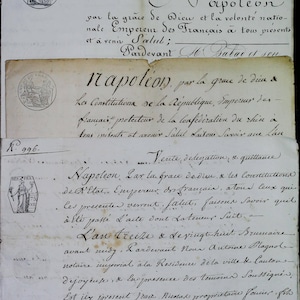 Napoléon
par la grâce de Dieu et la volonté natio-
nale Empereur des Français à tous présents
et à venir Salut;
Pardevant
Napoléon, par la grace de dieu &
les Constitutions de la République, Empereur des
francais, protecteur de la confédération du rhin à
tous présents et avenir Salut
N.° 996.
Vente, délégation, & quittance
Napoléon, Par la Grace de dieu & les Constitutions
de l'Etat, Empereur des français, atous ceux qui
les présentes verront, Salut, faisons Savoir quil
à été passé L'acte dont Lateneur Suit.
L'an treize & le vingthuit Brumaire
avant midy Pardevant Nous Antoine Magnol
notaire imperial a la Residence de la ville & Canton
de joyeuse, & la présence des temoins Soussignés